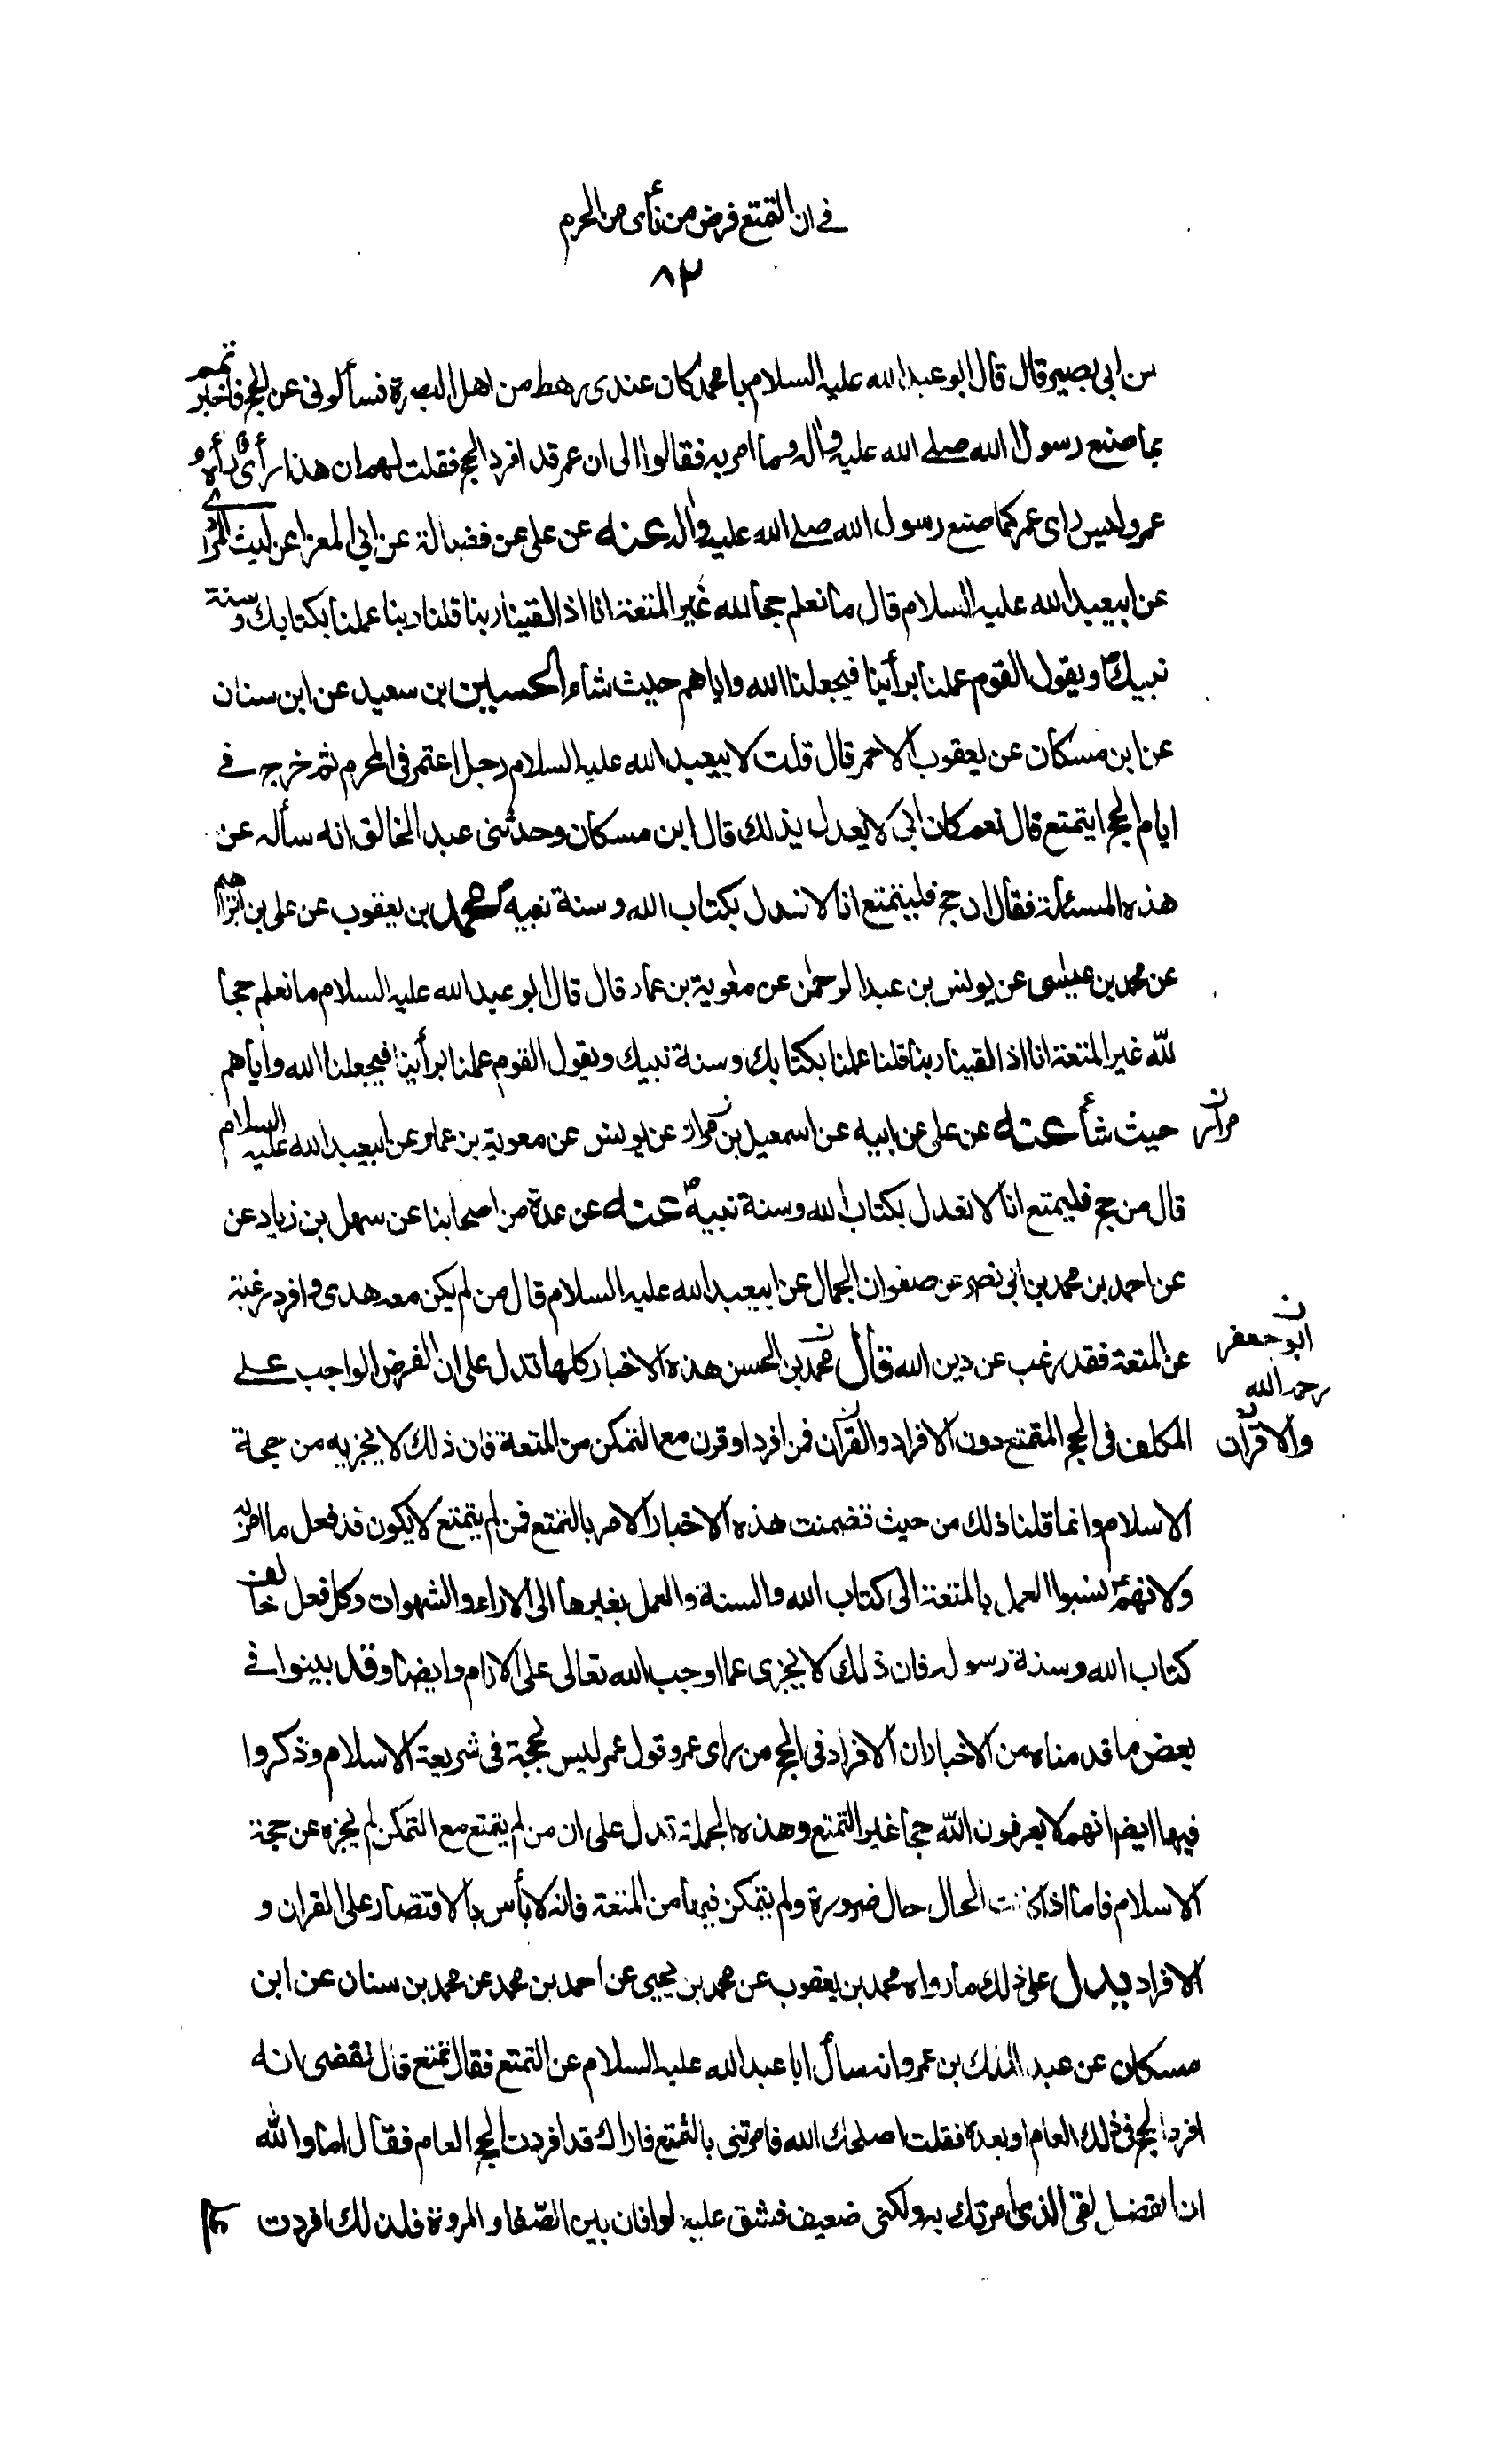 في ان التمتع فرض من نأى من الحرم
٨٢
عن ابي بصير قال قال ابو عبد الله عليه السلام يا محمد كان عندى رهط من اهل البصرة فسألونى عن الحج فاخبرتهم
بما صنع رسول الله صلى الله عليه وآله وما امر به فقالوا الى ان عمر قد افرد الحج فقلت لهم ان هذا رأى رأه
عمر وليس راى عمر كما صنع رسول الله صلى الله عليه وآله عنه عن على عن فضالة عن ابي المعزا عن ليث المرادى
عن ابيعبد الله عليه السلام قال ما نعلم حجا لله غير المتعة انا اذا لقينا ربنا قلنا ربنا عملنا بكتابك وسنة
نبيك ص ويقول القوم عملنا برأينا فيجعلنا الله واياهم حيث شاء الحسين بن سعيد عن ابن سنان
عن ابن مسكان عن يعقوب الاحمر قال قلت لابيعبد الله عليه السلام رجل اعتمر في المحرم ثم خرج في
ايام الحج ايتمتع قال نعم كان ابي لا يعدل بذلك قال ابن مسكان وحدثنى عبد الخالق انه سأله عن
هذه المسئلة فقال ان حج فليتمتع انا لا نعدل بكتاب الله وسنة نبيه ص محمد بن يعقوب عن على بن ابراهيم
عن محمد بن عيسى عن يونس بن عبد الرحمن عن معوية بن عمار قال قال ابو عبد الله عليه السلام ما نعلم حجا
لله غير المتعة انا اذا لقينا ربنا قلنا عملنا بكتابك وسنة نبيك ويقول القوم عملنا برأينا فيجعلنا الله واياهم
حيث شأ عنه عن على عن ابيه عن اسمعيل بن مرار عن يونس عن معوية بن عمار عن ابيعبد الله عليه السلام
مرار ن
قال من حج فليتمتع انا لا نعدل بكتاب الله وسنة نبيه ص عنه عن عدة من اصحابنا عن سهل بن زياد عن
عن احمد بن محمد بن ابي نصر عن صفوان الجمال عن ابيعبد الله عليه السلام قال من لم يكن معه هدى وافرد رغبة
عن المتعة فقد رغب عن دين الله قال محمد بن الحسن هذه الاخبار كلها تدل على ان الفرض الواجب على
ابو جعفر ن
رحمه الله
المكلف في الحج التمتع دون الافراد والقران فمن افرد او قرن مع التمكن من المتعة فان ذلك لا يجزيه من حجة
والاقران ن
الاسلام وانما قلنا ذلك من حيث تضمنت هذه الاخبار الامر بالتمتع فمن لم يتمتع لا يكون قد فعل ما امر به
ولانهم ع نسبوا العمل بالمتعة الى كتاب الله والسنة والعمل بغيرها الى الاراء والشهوات وكل فعل خالف
كتاب الله وسنة رسوله فان ذلك لا يجزى عما اوجب الله تعالى على الانام وايضا وقد بينوا في
بعض ما قدمناه من الاخبار ان الافراد في الحج من راى عمر وقول عمر ليس بحجة في شريعة الاسلام وذكروا
فيها ايضا انهم لا يعرفون لله حجا غير التمتع وهذه الجملة تدل على ان من لم يتمتع مع التمكن لم يجزه عن حجة
الاسلام فاما اذا كانت الحال حال ضرورة ولم يتمكن فيها من المتعة فانه لا بأس بالاقتصار على القران و
الافراد يدل على ذلك ما رواه محمد بن يعقوب عن محمد بن يحيى عن احمد بن محمد عن محمد بن سنان عن ابن
مسكان عن عبد الملك بن عمرو انه سأل ابا عبد الله عليه السلام عن التمتع فقال تمتع قال فقضى انه
افرد الحج في ذلك العام او بعده فقلت اصلحك الله فامرتنى بالتمتع فاراك قد افردت الحج العام فقال اما والله
ان الفضل لفي الذى امرتك به ولكنى ضعيف فشق عليه طوافان بين الصفا والمروة فلذلك افردت